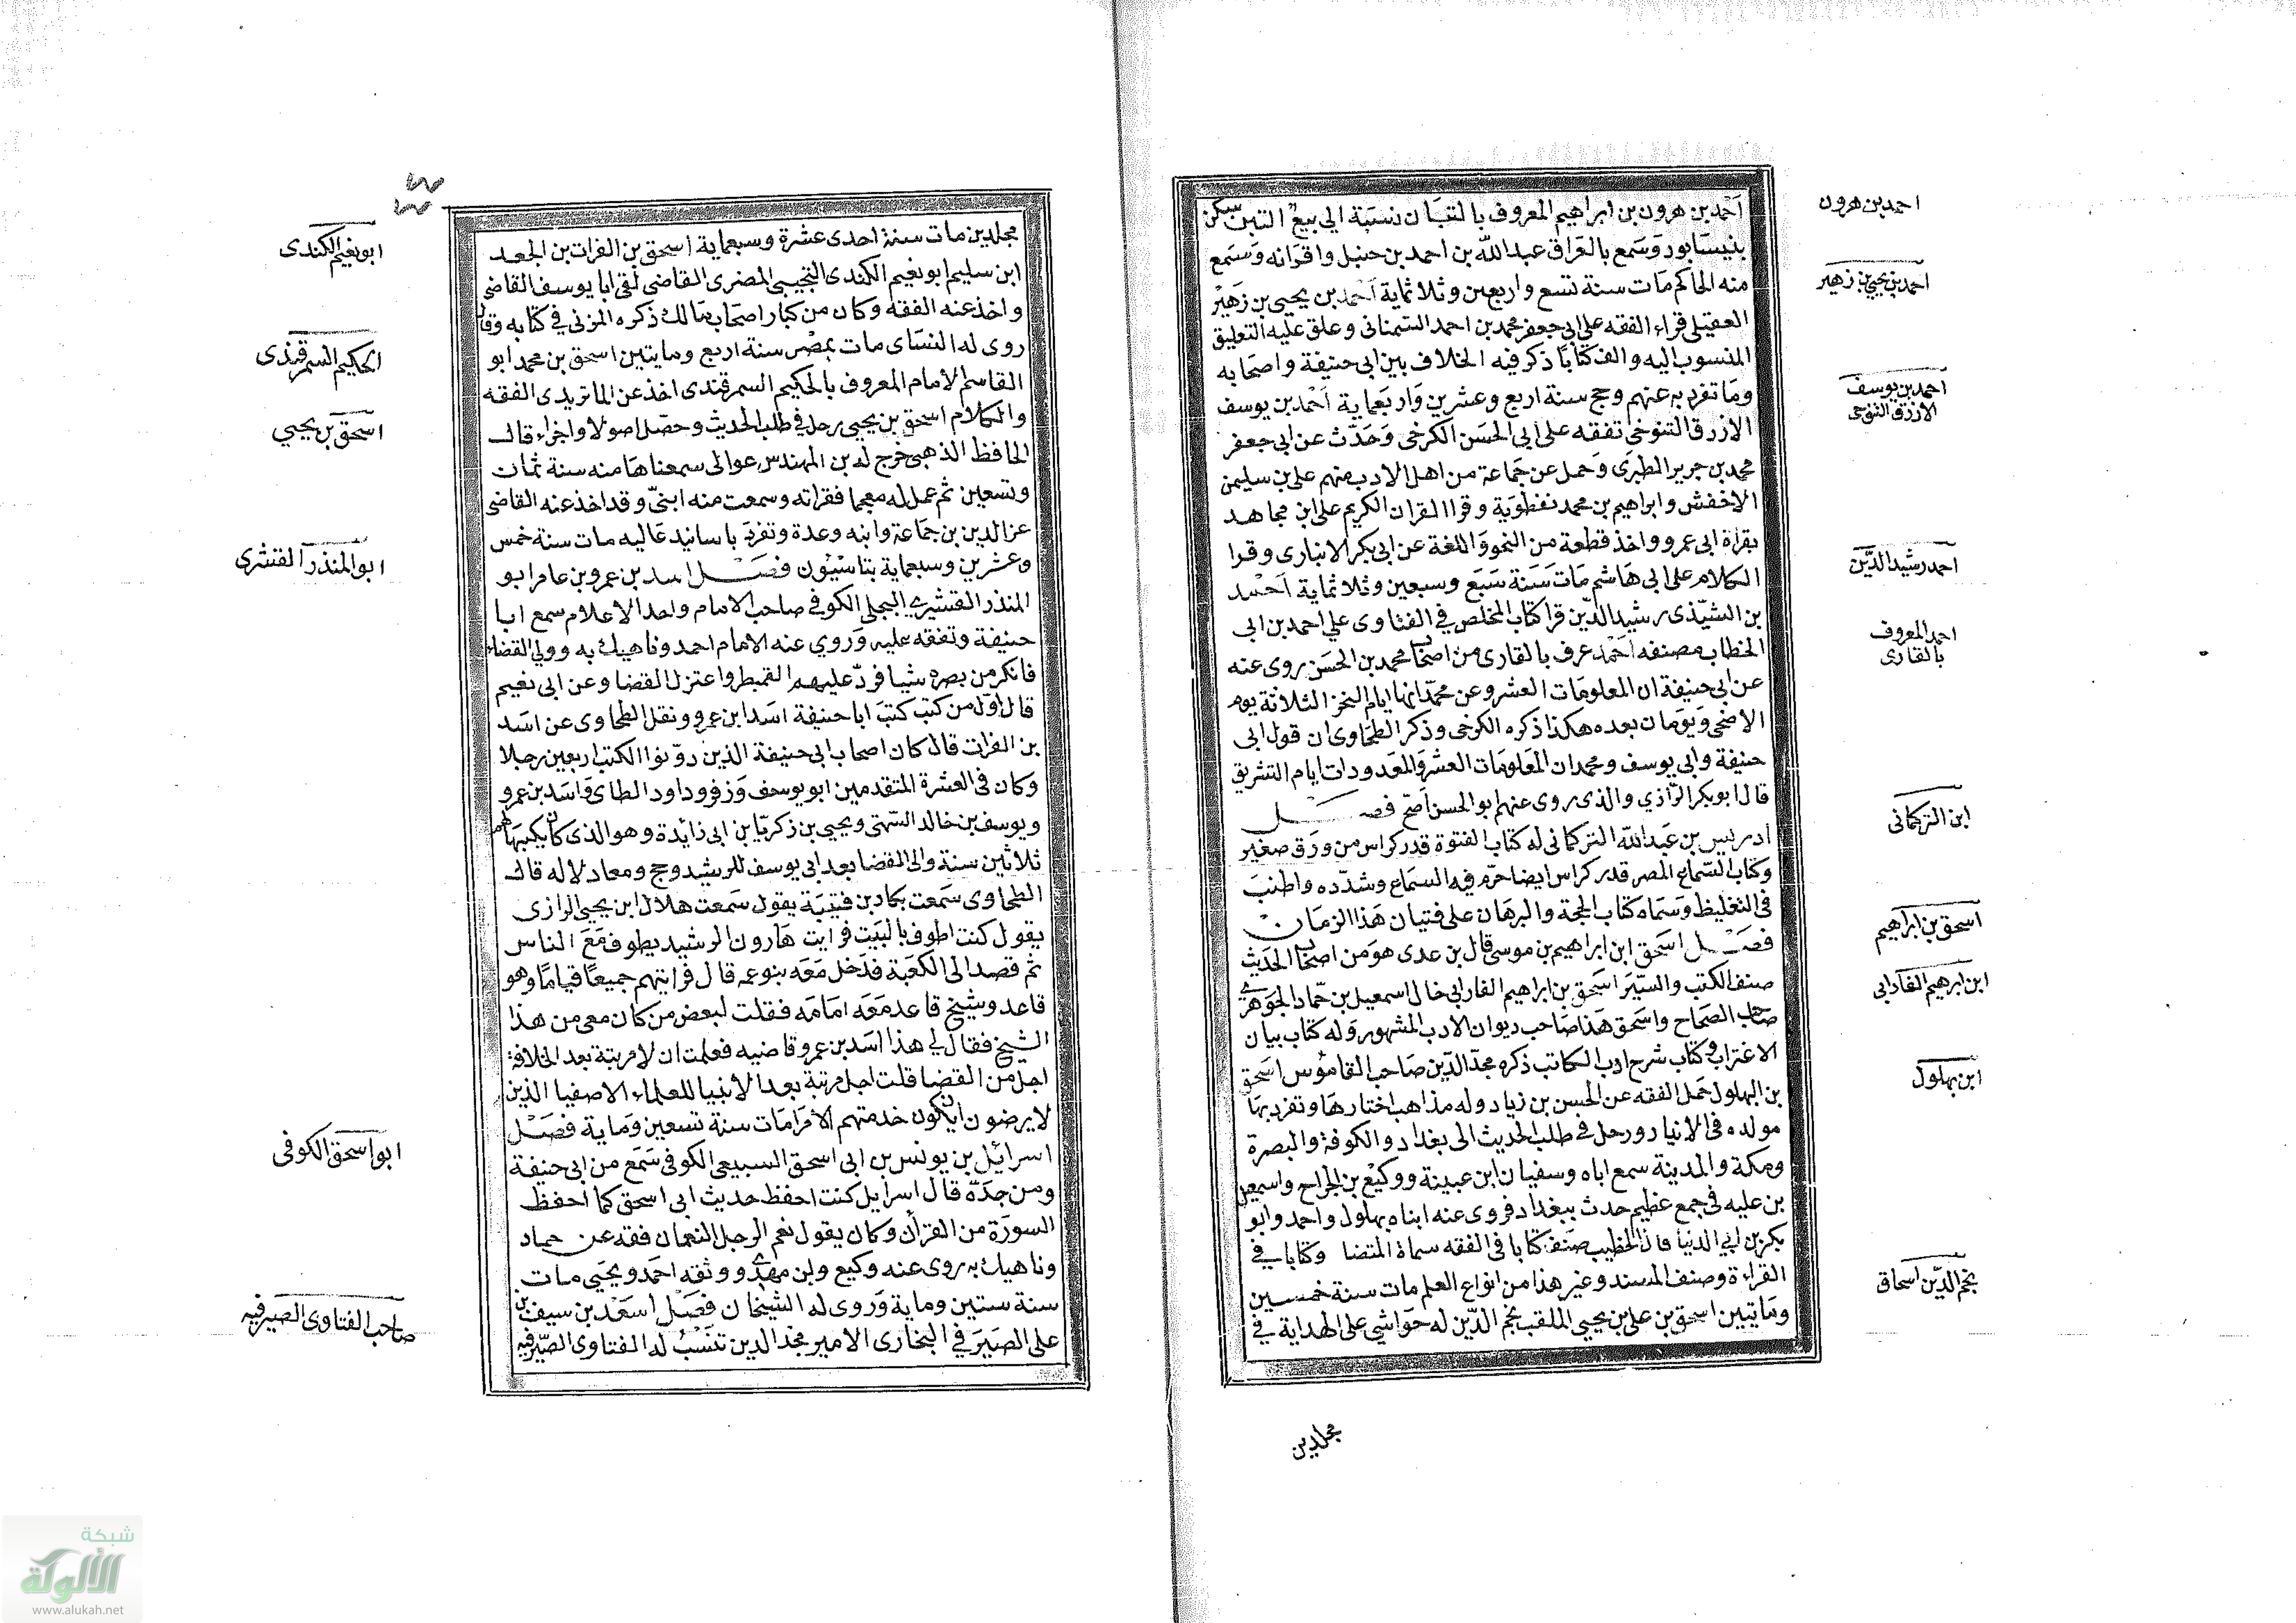 احمد بن هرون بن ابراهيم المعروف بالتبان نسبة الي بيع التبن سكن
بنيسابور وسمع بالعراق عبد الله بن احمد بن حنبل واقرانه وسمع
منه الحاكم مات سنة تسع واربعين وثلاثماية احمد بن يحيى بن زهير
العقيلى قراء الفقه علي ابي جعفر محمد بن احمد السمنانى وعلق عليه التعليق
المنسوب اليه والف كتابا ذكر فيه الخلاف بين ابى حنيفة واصحابه
وما تفرد به عنهم وحج سنة اربع وعشرين واربعماية احمد بن يوسف
الازرق التنوخى تفقه على ابي الحسن الكرخى وحدث عن ابى جعفر
محمد بن جرير الطبرى وحمل عن جماعة من اهل الادب منهم على بن سليمن
الاخفش وابراهيم بن محمد نفطوية وقرا القران الكريم على ابن مجاهد
بقراة ابى عمرو واخذ قطعة من النحو واللغة عن ابى بكر الانبارى وقرا
الكلام على ابي هاشم مات سنة سبع وسبعين وثلاثماية احمد
بن الشيذى رشيد الدين قرا كتاب الملخص في الفتاوى علي احمد بن ابي
الخطاب مصنفه احمد عرف بالقارى من اصحاب محمد بن الحسن روى عنه
عن ابي حنيفة ان المعلومات العشر وعن محمد انها ايام النحر الثلاثة يوم
الاضحى ويومان بعده هكذا ذكره الكرخى وذكر الطحاوى ان قول ابى
حنيفة وابي يوسف ومحمد ان المعلومات العشر والمعدودات ايام التشريق
قال ابو بكر الرازي والذى روى عنهم ابو الحسن اصح فصل
ادريس بن عبد الله التركمانى له كتاب الفتوة قدر كراس من ورق صغير
وكتاب السماع المصر قدر كراس ايضا حرم فيه السماع وشدده واطنب
فى التغليظ وسماه كتاب الحجة والبرهان على فتيان هذا الزمان
فصل اسحق ابن ابراهيم بن موسى قال بن عدى هو من اصحاب الحديث
صنف الكتب والسير اسحق بن ابراهيم الفارابى خال اسمعيل بن حماد الجوهرى
صاحب الصحاح واسحق هذا صاحب ديوان الادب المشهور وله كتاب بيان
الاغتراب وكتاب شرح ادب الكاتب ذكره مجد الدين صاحب القاموس اسحق
بن البهلول حمل الفقه عن الحسن بن زياد وله مذاهب اختارها وتفرد بها
مولده فى الانبار ورحل في طلب الحديث الى بغداد والكوفة والبصرة
ومكة والمدينة سمع اباه وسفيان ابن عيينة ووكيع بن الجراح واسمعيل
بن عليه فى جمع عظيم حدث ببغداد فروى عنه ابناه بهلول واحمد وابو
بكر بن ابي الدنيا قال الخطيب صنف كتابا فى الفقه سماه المتضا وكتابا في
القراءة وصنف المسند وغير هذا من انواع العلم مات سنة خمسين
ومايتين اسحق بن على بن يحيى الملقب نجم الدين له حواشى على الهداية في
مجلدين
احمد بن هرون
احمد بن يحيى بن زهير
احمد بن يوسف
الازرق التنوخى
احمد رشيد الدين
احمد المعروف
بالقارى
ابن التركمانى
اسحق بن ابراهيم
ابن ابرهيم الفارابى
ابن بهلول
نجم الدين اسحاق
مجلدين مات سنة احدى عشرة وسبعماية اسحق بن الفرات بن الجعد
ابن سليم ابو نعيم الكندى التجيبى المصرى القاضى لقى ابا يوسف القاضى
واخذ عنه الفقه وكان من كبار اصحاب مالك ذكره المزنى في كتابه وقال
روى له النساى مات بمصر سنة اربع ومايتين اسحق بن محمد ابو
القاسم الامام المعروف بالحكيم السمرقندى اخذ عن الماتريدى الفقه
والكلام اسحق بن يحيى رحل في طلب الحديث وحصل اصولا واجزاء قال
الحافظ الذهبى خرج له بن المهندس عوالى سمعناها منه سنة ثمان
وتسعين ثم عمل له معجما فقراته وسمعت منه ابنى وقد اخذ عنه القاضى
عز الدين بن جماعة وابنه وعدة وتفرد باسانيد عاليه مات سنة خمس
وعشرين وسبعماية بتاسيون فصل اسد بن عمرو بن عامر ابو
المنذر القشيرى البجلى الكوفى صاحب الامام واحد الاعلام سمع ابا
حنيفة وتفقه عليه وروي عنه الامام احمد وناهيك به وولى القضاء
فانكر من بصره شيا فرد عليهم القمطر واعتزل القضا وعن ابى نعيم
قال اول من كتب كتب ابا حنيفة اسد ابن عمرو ونقل الطحاوى عن اسد
بن الفرات قال كان اصحاب ابى حنيفة الذين دونوا الكتب اربعين رجلا
وكان فى العشرة المتقدمين ابو يوسف وزفر وداود الطاى واسد بن عمرو
ويوسف بن خالد السمتى ويحيى بن زكريا بن ابى زائدة وهو الذى كان يكتبها لهم
ثلاثين سنة والى القضا بعد ابى يوسف للرشيد وحج ومعادلا له قال
الطحاوى سمعت بكار بن قتيبة يقول سمعت هلال ابن يحيى الرازى
يقول كنت اطوف بالبيت فرايت هارون الرشيد يطوف مع الناس
ثم قصد الى الكعبة فدخل معه بنو عمه قال فرايتهم جميعا قياما وهو
قاعد وشيخ قاعد معه امامه فقلت لبعض من كان معى من هذا
الشيخ فقال لي هذا اسد بن عمرو قاضيه فعلمت ان لا مرتبة بعد الخلافة
اجل من القضا قلت اجل مرتبة بعد الانبيا للعلماء الاصفيا الذين
لا يرضون ان يكون خدمتهم الامرا مات سنة تسعين وماية فصل
اسرائيل بن يونس بن ابى اسحق السبيعى الكوفى سمع من ابى حنيفة
ومن جده قال اسرايل كنت احفظ حديث ابى اسحق كما احفظ
السورة من القرآن وكان يقول نعم الرجل النعمان فقه عن حماد
وناهيك به روى عنه وكيع وابن مهدى ووثقه احمد ويحيى مات
سنة ستين وماية وروى له الشيخان فصل اسعد بن سيف بن
على الصيرفي البخارى الامير مجد الدين تنسب له الفتاوى الصيرفيه
ابو نعيم الكندى
الحكيم السمرقندى
اسحق بن يحيى
ابو المنذر القشرى
ابو اسحق الكوفى
صاحب الفتاوى الصيرفيه
شبكة
الألوكة
www.alukah.net